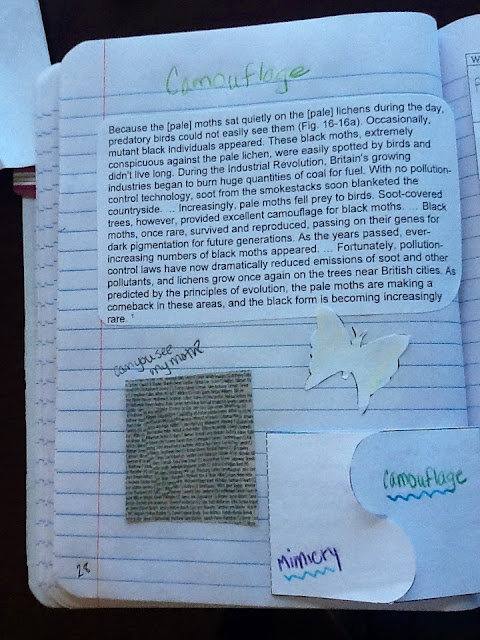 Camouflage
Because the [pale] moths sat quietly on the [pale] lichens during the day,
predatory birds could not easily see them (Fig. 16-16a). Occasionally,
mutant black individuals appeared. These black moths, extremely
conspicuous against the pale lichen, were easily spotted by birds and
didn't live long. During the Industrial Revolution, Britain's growing
industries began to burn huge quantities of coal for fuel. With no pollution-
control technology, soot from the smokestacks soon blanketed the
countryside. ... Increasingly, pale moths fell prey to birds. Soot-covered
trees, however, provided excellent camouflage for black moths. ... Black
moths, once rare, survived and reproduced, passing on their genes for
dark pigmentation for future generations. As the years passed, ever-
increasing numbers of black moths appeared. ... Fortunately, pollution-
control laws have now dramatically reduced emissions of soot and other
pollutants, and lichens grow once again on the trees near British cities. As
predicted by the principles of evolution, the pale moths are making a
comeback in these areas, and the black form is becoming increasingly
rare. 1
can you see
my moth?
camouflage
mimicry
28